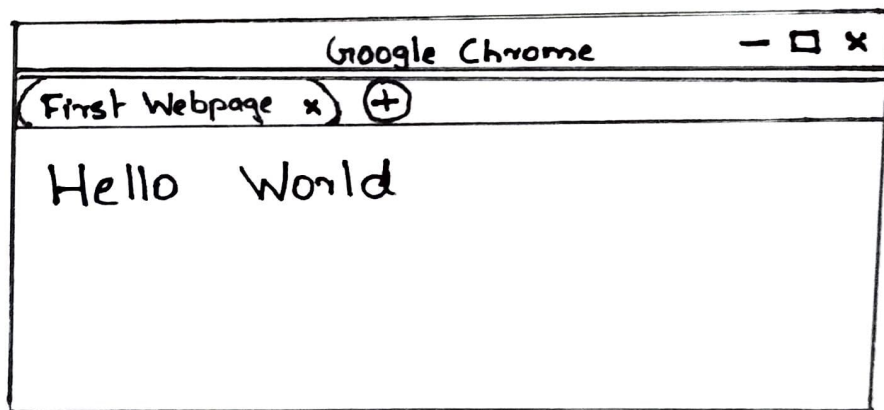 Google Chrome
First Webpage x
Hello World